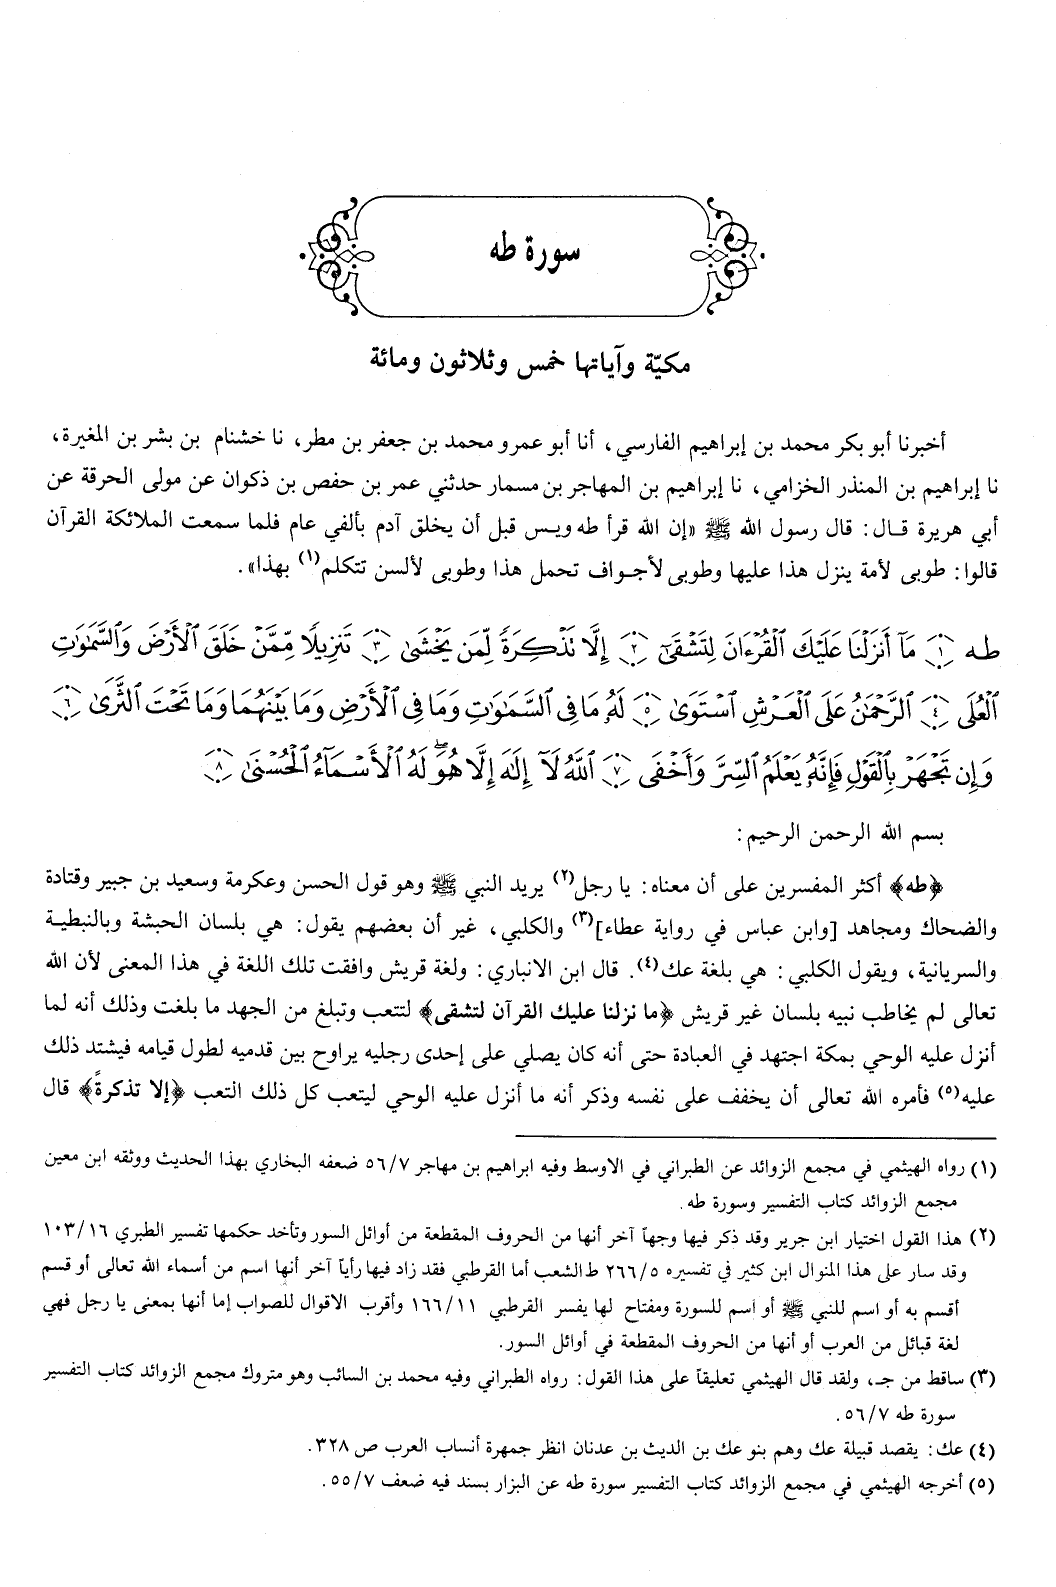 سورة طه
مكيّة وآياتها خمس وثلاثون ومائة
أخبرنا أبو بكر محمد بن إبراهيم الفارسي، أنا أبو عمرو محمد بن جعفر بن مطر، نا خشنام بن بشر بن المغيرة،
نا إبراهيم بن المنذر الخزامي، نا إبراهيم بن المهاجر بن مسمار حدثني عمر بن حفص بن ذكوان عن مولى الحرقة عن
أبي هريرة قال: قال رسول الله ﷺ «إن الله قرأ طه ويس قبل أن يخلق آدم بألفي عام فلما سمعت الملائكة القرآن
قالوا: طوبى لأمة ينزل هذا عليها وطوبى لأجواف تحمل هذا وطوبى لألسن تتكلم(١) بهذا».
طه ﴿١﴾ مَآ أَنزَلْنَا عَلَيْكَ ٱلْقُرْءَانَ لِتَشْقَىٰٓ ﴿٢﴾ إِلَّا تَذْكِرَةً لِّمَن يَخْشَىٰ ﴿٣﴾ تَنزِيلًا مِّمَّنْ خَلَقَ ٱلْأَرْضَ وَٱلسَّمَٰوَٰتِ
ٱلْعُلَى ﴿٤﴾ ٱلرَّحْمَٰنُ عَلَى ٱلْعَرْشِ ٱسْتَوَىٰ ﴿٥﴾ لَهُۥ مَا فِى ٱلسَّمَٰوَٰتِ وَمَا فِى ٱلْأَرْضِ وَمَا بَيْنَهُمَا وَمَا تَحْتَ ٱلثَّرَىٰ ﴿٦﴾
وَإِن تَجْهَرْ بِٱلْقَوْلِ فَإِنَّهُۥ يَعْلَمُ ٱلسِّرَّ وَأَخْفَى ﴿٧﴾ ٱللَّهُ لَآ إِلَٰهَ إِلَّا هُوَ ۖ لَهُ ٱلْأَسْمَآءُ ٱلْحُسْنَىٰ ﴿٨﴾
بسم الله الرحمن الرحيم:
﴿طه﴾ أكثر المفسرين على أن معناه: يا رجل(٢) يريد النبي ﷺ وهو قول الحسن وعكرمة وسعيد بن جبير وقتادة
والضحاك ومجاهد [وابن عباس في رواية عطاء](٣) والكلبي، غير أن بعضهم يقول: هي بلسان الحبشة وبالنبطية
والسريانية، ويقول الكلبي: هي بلغة عك(٤). قال ابن الانباري: ولغة قريش وافقت تلك اللغة في هذا المعنى لأن الله
تعالى لم يخاطب نبيه بلسان غير قريش ﴿ما نزلنا عليك القرآن لتشقى﴾ لتتعب وتبلغ من الجهد ما بلغت وذلك أنه لما
أنزل عليه الوحي بمكة اجتهد في العبادة حتى أنه كان يصلي على إحدى رجليه يراوح بين قدميه لطول قيامه فيشتد ذلك
عليه(٥) فأمره الله تعالى أن يخفف على نفسه وذكر أنه ما أنزل عليه الوحي ليتعب كل ذلك التعب ﴿إلا تذكرةً﴾ قال
(١) رواه الهيثمي في مجمع الزوائد عن الطبراني في الاوسط وفيه ابراهيم بن مهاجر ٥٦/٧ ضعفه البخاري بهذا الحديث ووثقه ابن معين
مجمع الزوائد كتاب التفسير وسورة طه.
(٢) هذا القول اختيار ابن جرير وقد ذكر فيها وجهاً آخر أنها من الحروف المقطعة من أوائل السور وتأخد حكمها تفسير الطبري ١٠٣/١٦
وقد سار على هذا المنوال ابن كثير في تفسيره ٢٦٦/٥ ط الشعب أما القرطبي فقد زاد فيها رأياً آخر أنها اسم من أسماء الله تعالى أو قسم
أقسم به أو اسم للنبي ﷺ أو اسم للسورة ومفتاح لها يفسر القرطبي ١٦٦/١١ وأقرب الاقوال للصواب إما أنها بمعنى يا رجل فهي
لغة قبائل من العرب أو أنها من الحروف المقطعة في أوائل السور.
(٣) ساقط من جـ، ولقد قال الهيثمي تعليقاً على هذا القول: رواه الطبراني وفيه محمد بن السائب وهو متروك مجمع الزوائد كتاب التفسير
سورة طه ٥٦/٧.
(٤) عك: يقصد قبيلة عك وهم بنو عك بن الديث بن عدنان انظر جمهرة أنساب العرب ص ٣٢٨.
(٥) أخرجه الهيثمي في مجمع الزوائد كتاب التفسير سورة طه عن البزار بسند فيه ضعف ٥٥/٧.